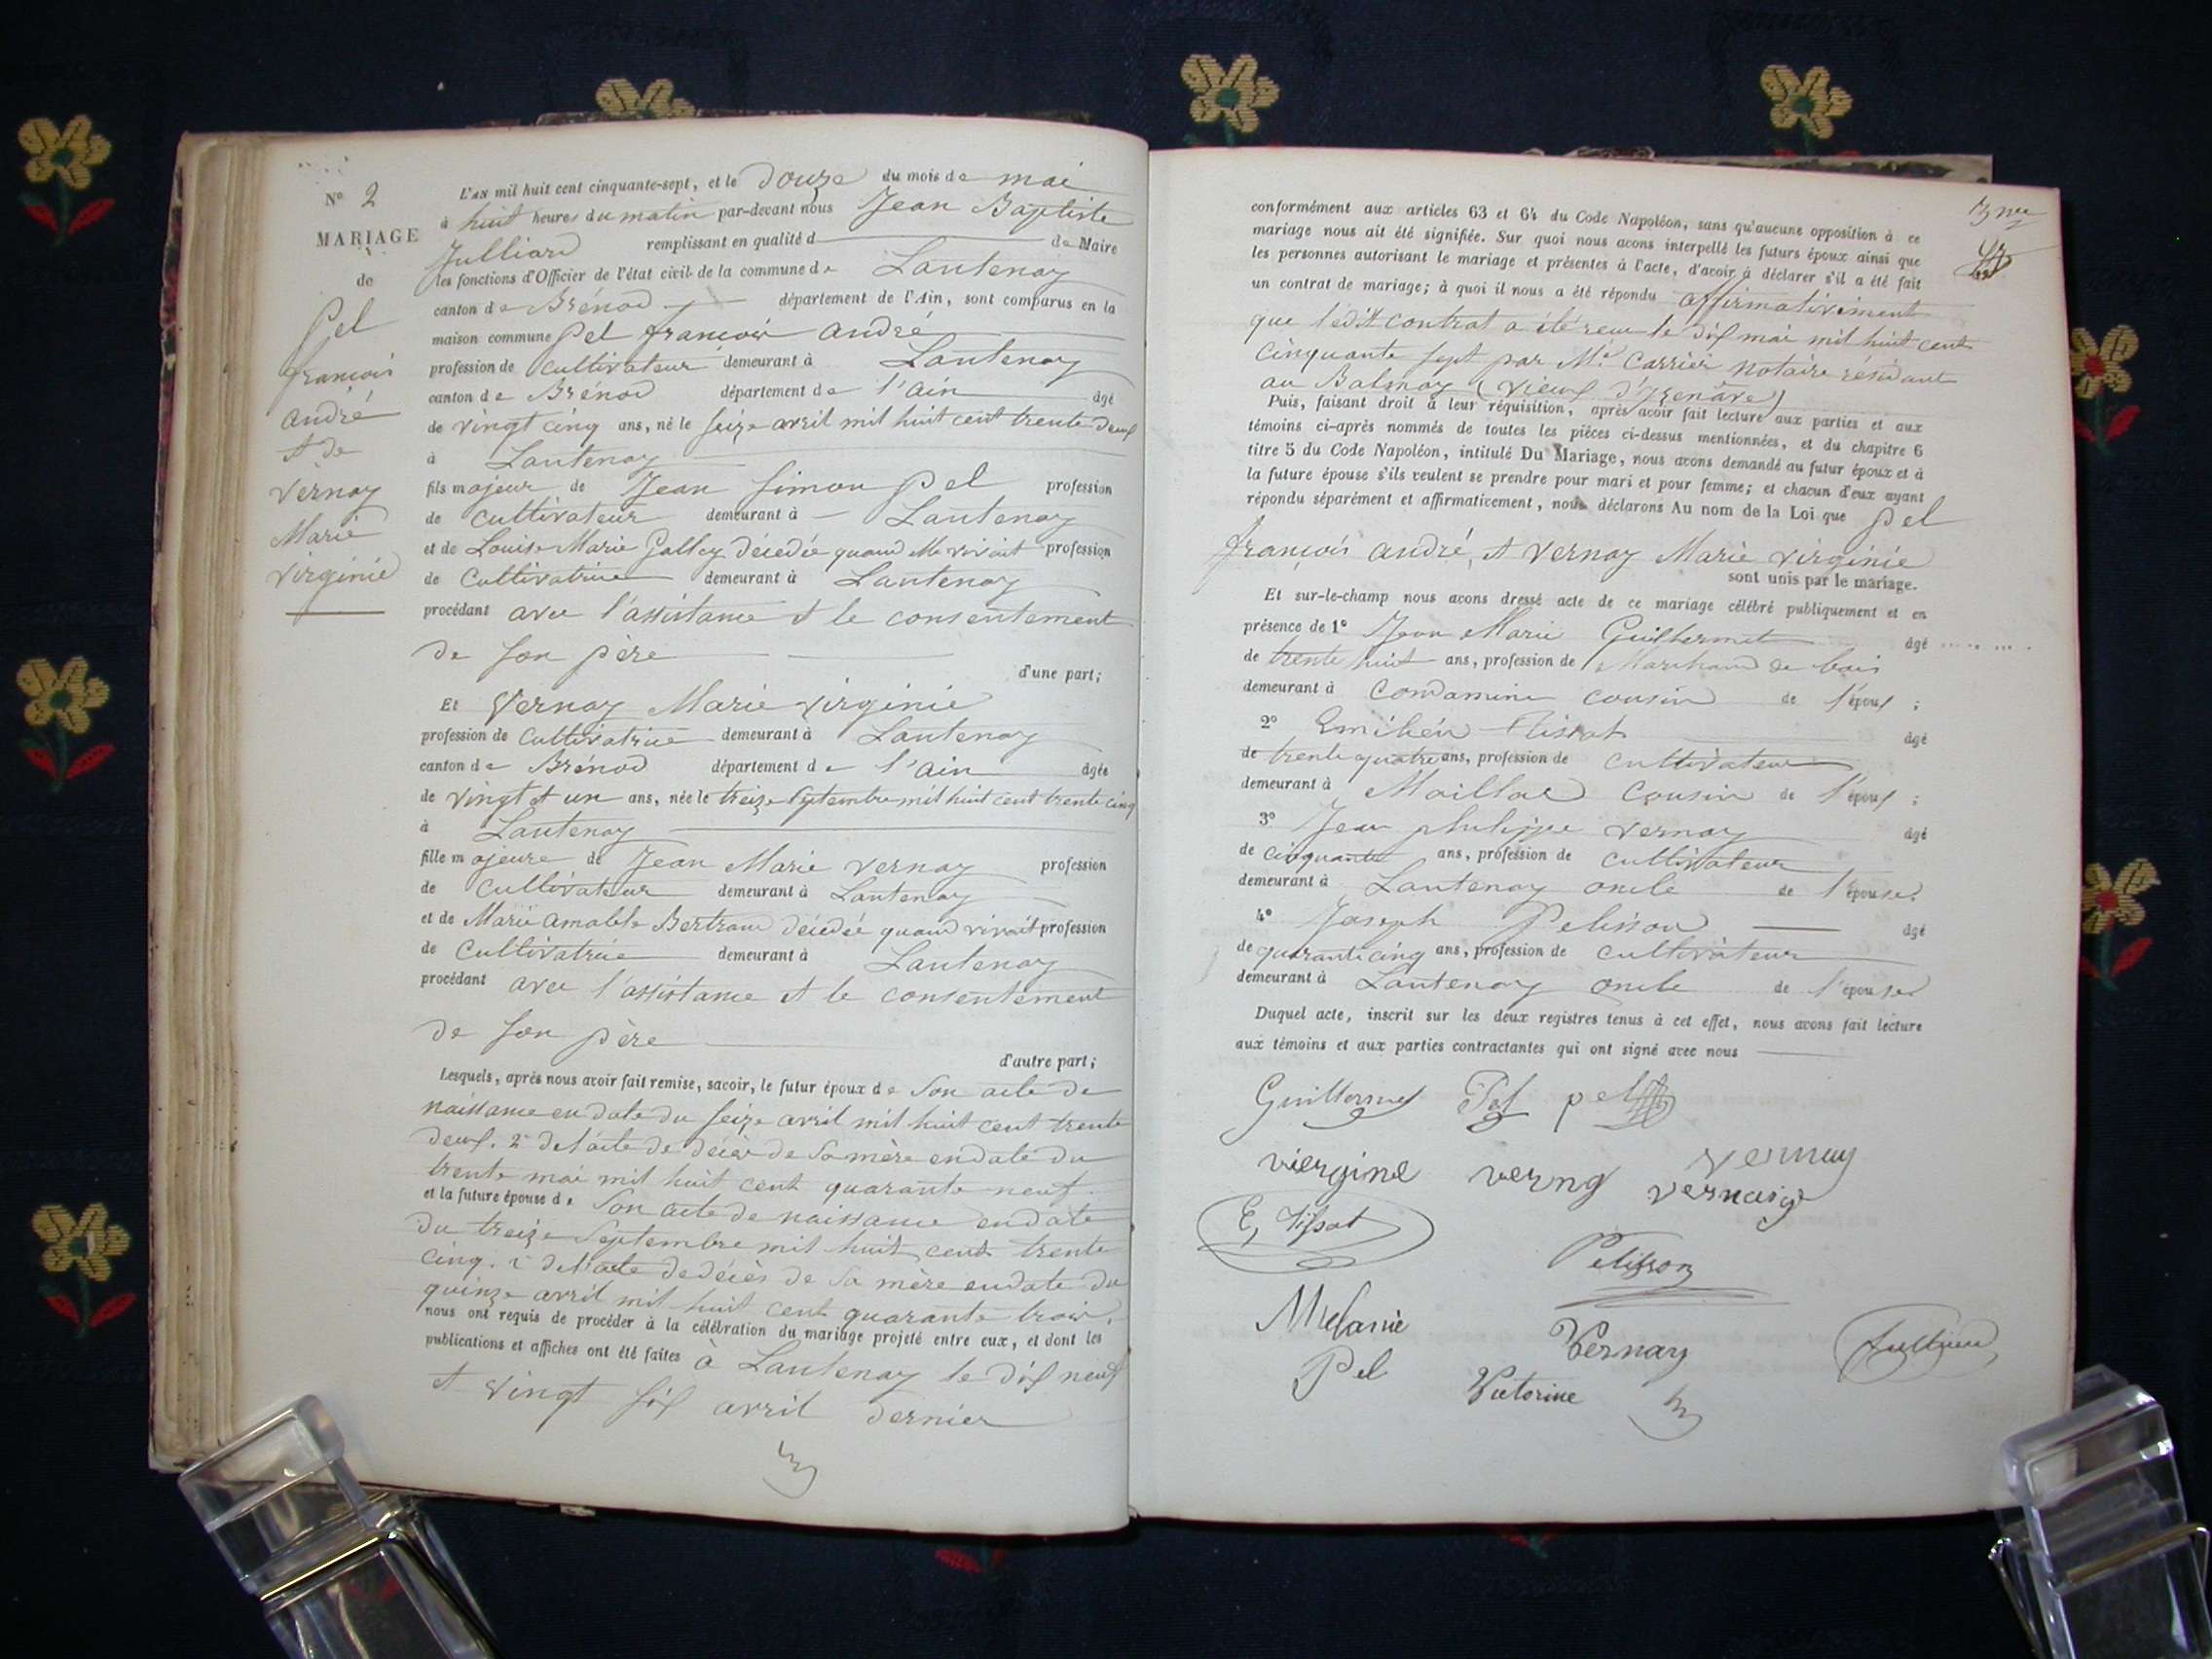 N° 2
MARIAGE
de
Pel
françois
andré
et de
Vernay
Marie
Virginie
L'AN mil huit cent cinquante-sept, et le Douze du mois de mai
à huit heures du matin par-devant nous Jean Baptiste
Julliard remplissant en qualité d de Maire
les fonctions d'Officier de l'état civil de la commune de Lantenay
canton de Brénod département de l'Ain, sont comparus en la
maison commune Pel françois andré
profession de cultivateur demeurant à Lantenay
canton de Brénod département de l'ain âgé
de vingt cinq ans, né le seize avril mil huit cent trente deux
à Lantenay
fils majeur de Jean Simon Pel profession
de cultivateur demeurant à Lantenay
et de Louise Marie Galley décedée quand elle vivait profession
de Cultivatrice demeurant à Lantenay
procédant avec l'assistance et le consentement
de son père
d'une part;
Et Vernay Marie virginie
profession de cultivatrice demeurant à Lantenay
canton de Brénod département de l'ain âgée
de vingt et un ans, née le treize Septembre mil huit cent trente cinq
à Lantenay
fille majeure de Jean Marie Vernay profession
de cultivateur demeurant à Lantenay
et de Marie amable Bertrand décédée quand vivait profession
de Cultivatrice demeurant à Lantenay
procédant avec l'assistance et le consentement
de son père
d'autre part;
Lesquels, après nous avoir fait remise, savoir, le futur époux de Son acte de
naissance en date du seize avril mil huit cent trente
deux. 2° de l'acte de décès de Sa mère en date du
trente mai mil huit cent quarante neuf.
et la future épouse de Son acte de naissance en date
du treize Septembre mil huit cent trente
cinq. 2° de l'acte de décès de Sa mère en date du
quinze avril mil huit cent quarante trois.
nous ont requis de procéder à la célébration du mariage projeté entre eux, et dont les
publications et affiches ont été faites à Lantenay le dix neuf
et vingt six avril dernier
conformément aux articles 63 et 64 du Code Napoléon, sans qu'aucune opposition à ce
mariage nous ait été signifiée. Sur quoi nous avons interpellé les futurs époux ainsi que
les personnes autorisant le mariage et présentes à l'acte, d'avoir à déclarer s'il a été fait
un contrat de mariage; à quoi il nous a été répondu affirmativement
que ledit contrat a été recu le dix mai mil huit cent
cinquante sept par Me Carrier notaire résidant
au Balmay (vieux d'Izenave)
Puis, faisant droit à leur réquisition, après avoir fait lecture aux parties et aux
témoins ci-après nommés de toutes les pièces ci-dessus mentionnées, et du chapitre 6
titre 5 du Code Napoléon, intitulé Du Mariage, nous avons demandé au futur époux et à
la future épouse s'ils veulent se prendre pour mari et pour femme; et chacun d'eux ayant
répondu séparément et affirmativement, nous déclarons Au nom de la Loi que Pel
françois andré, et Vernay Marie virginie
sont unis par le mariage.
Et sur-le-champ nous avons dressé acte de ce mariage célébré publiquement et en
présence de 1° Jean Marie Guillermet âgé
de trente huit ans, profession de Marchand de bois
demeurant à Condamine cousin de l'époux ;
2° Emilien Tissot âgé
de trente quatre ans, profession de cultivateur
demeurant à Maillac Cousin de l'époux ;
3° Jean philippe Vernay âgé
de cinquante ans, profession de cultivateur
demeurant à Lantenay oncle de l'épouse.
4° Joseph Pelisson âgé
de quarante cinq ans, profession de cultivateur
demeurant à Lantenay oncle de l'épouse.
Duquel acte, inscrit sur les deux registres tenus à cet effet, nous avons fait lecture
aux témoins et aux parties contractantes qui ont signé avec nous
Guillermet Pel pel
viergine verny vernay
vernay
E, Tissot
Pelisson
Melanie
Pel
Vernay
Victorine
Julliard